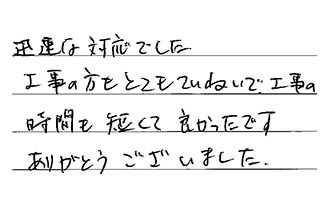 迅速な対応でした
工事の方もとてもていねいで、工事の
時間も短くて良かったです
ありがとうございました.